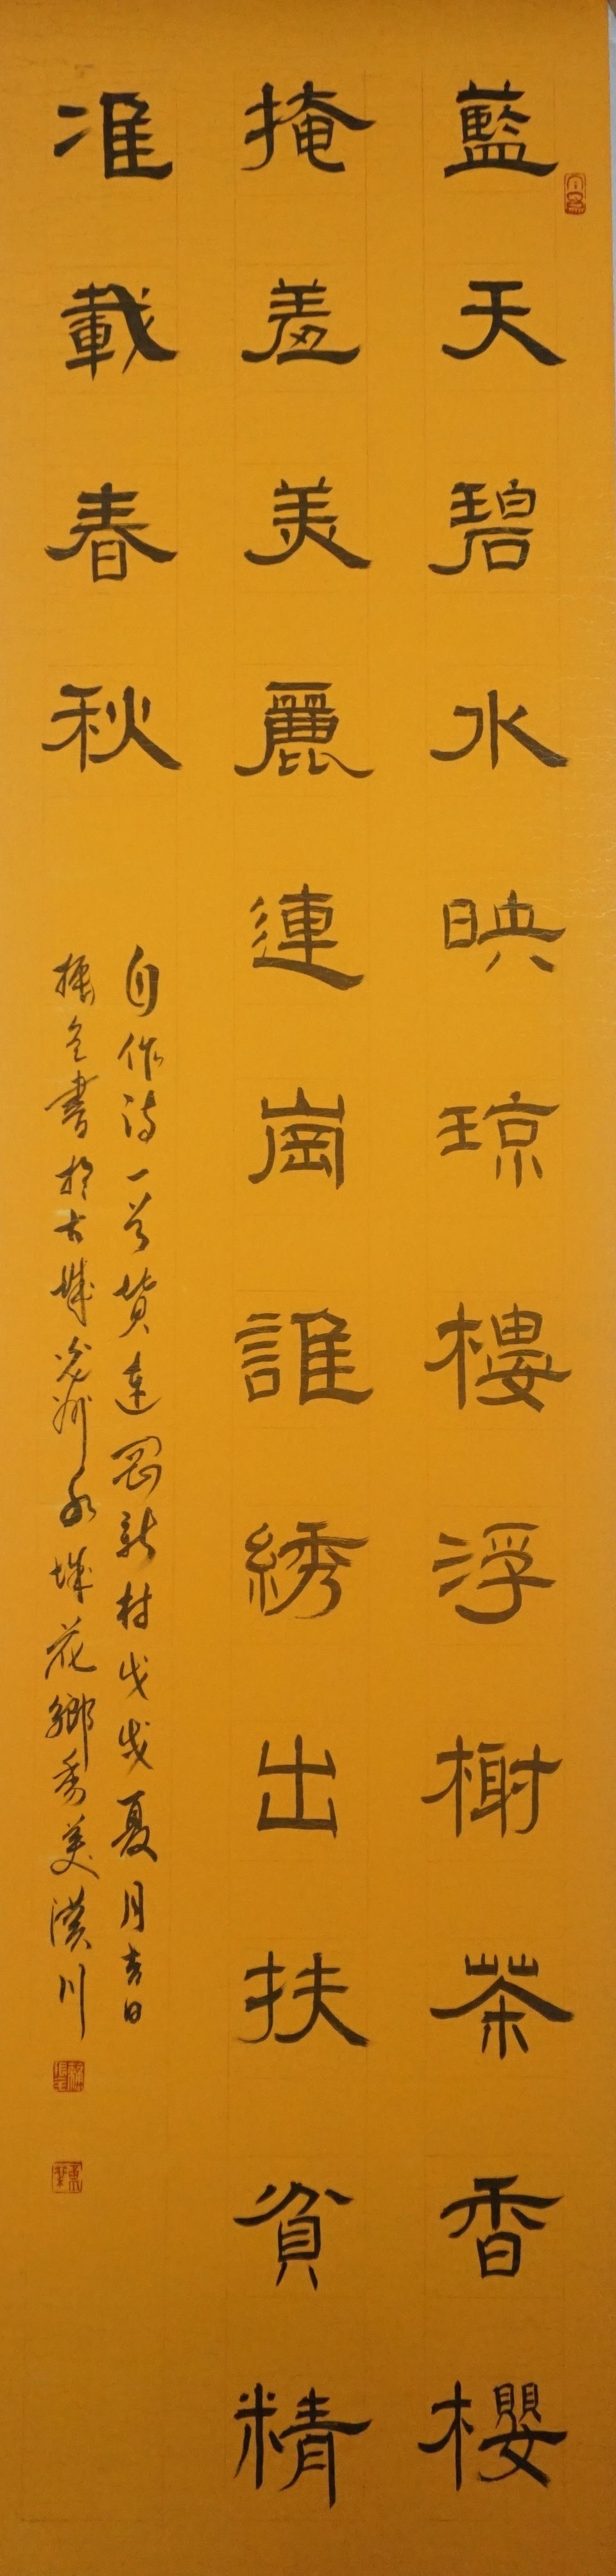 藍天碧水映琼樓浮榭茶香櫻
掩羞美麗連崗誰綉出扶貧精
准載春秋
自作诗一首贊连岡新村戊戌夏月吉日
振書於古城光州水城花鄉秀美潢川